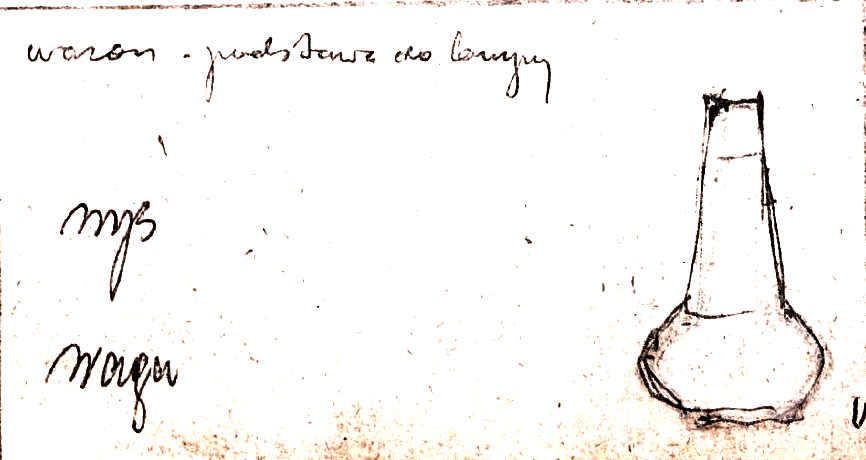 wazon - podstawa do lampy
rys
waga